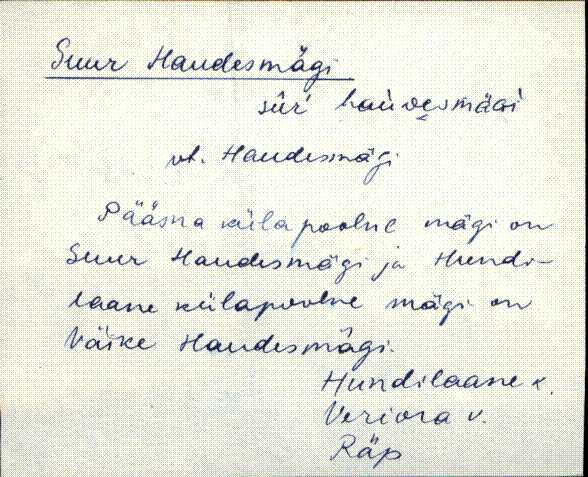 Suur Haudesmägi
vt. Haudesmägi
Pääsna külapoolne mägi on
Suur Haudesmägi ja Hundi-
laane külapoolne mägi on
Väike Haudesmägi.
Hundilaane k.
Veriora v.
Räp